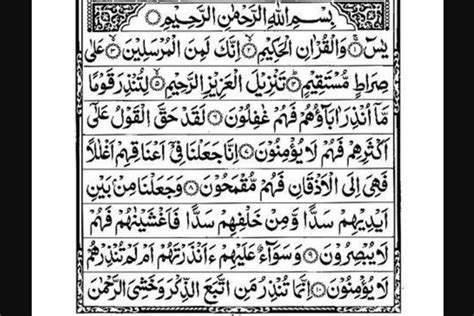 بِسْمِ اللهِ الرَّحْمٰنِ الرَّحِيْمِ
يٰسٓ ۝١ وَالْقُرْاٰنِ الْحَكِيْمِ ۝٢ اِنَّكَ لَمِنَ الْمُرْسَلِيْنَ ۝٣ عَلٰى
صِرَاطٍ مُّسْتَقِيْمٍ ۝٤ تَنْزِيْلَ الْعَزِيْزِ الرَّحِيْمِ ۝٥ لِتُنْذِرَ قَوْمًا
مَّاۤ اُنْذِرَ اٰبَآؤُهُمْ فَهُمْ غٰفِلُوْنَ ۝٦ لَقَدْ حَقَّ الْقَوْلُ عَلٰۤى
اَكْثَرِهِمْ فَهُمْ لَا يُؤْمِنُوْنَ ۝٧ اِنَّا جَعَلْنَا فِيْۤ اَعْنَاقِهِمْ اَغْلٰلًا
فَهِيَ اِلَى الْاَذْقَانِ فَهُمْ مُّقْمَحُوْنَ ۝٨ وَجَعَلْنَا مِنْۢ بَيْنِ
اَيْدِيْهِمْ سَدًّا وَّمِنْ خَلْفِهِمْ سَدًّا فَاَغْشَيْنٰهُمْ فَهُمْ
لَا يُبْصِرُوْنَ ۝٩ وَسَوَآءٌ عَلَيْهِمْ ءَاَنْذَرْتَهُمْ اَمْ لَمْ تُنْذِرْهُمْ
لَا يُؤْمِنُوْنَ ۝١٠ اِنَّمَا تُنْذِرُ مَنِ اتَّبَعَ الذِّكْرَ وَخَشِيَ الرَّحْمٰنَ